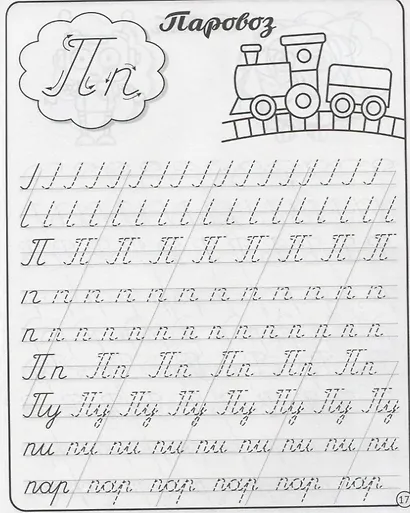 Паровоз
Пп
П П П П П П П П
п п п п п п п п п п п п
п п п п п п п п п п п п п
Пп Пп Пп Пп Пп Пп
Пу Пу Пу Пу Пу Пу Пу Пу
пи пи пи пи пи пи пи пи пи
пар пар пар пар пар пар
17